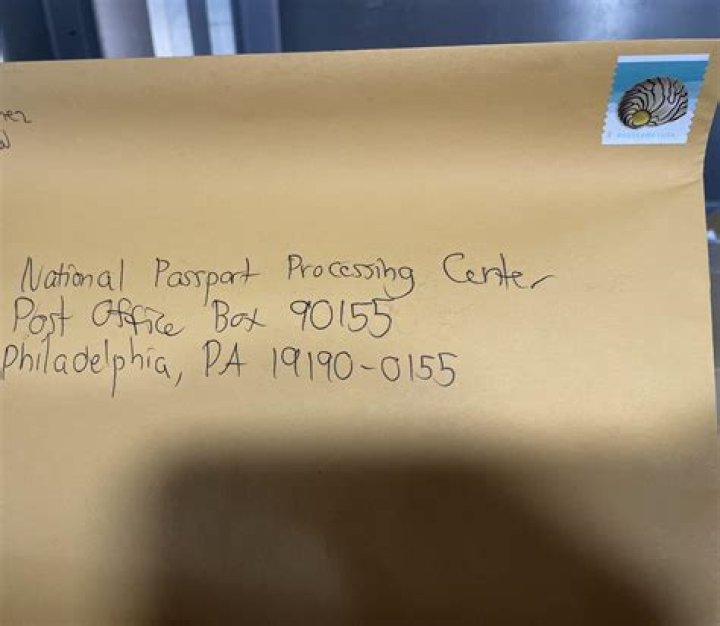 National Passport Processing Center
Post Office Box 90155
Philadelphia, PA 19190-0155